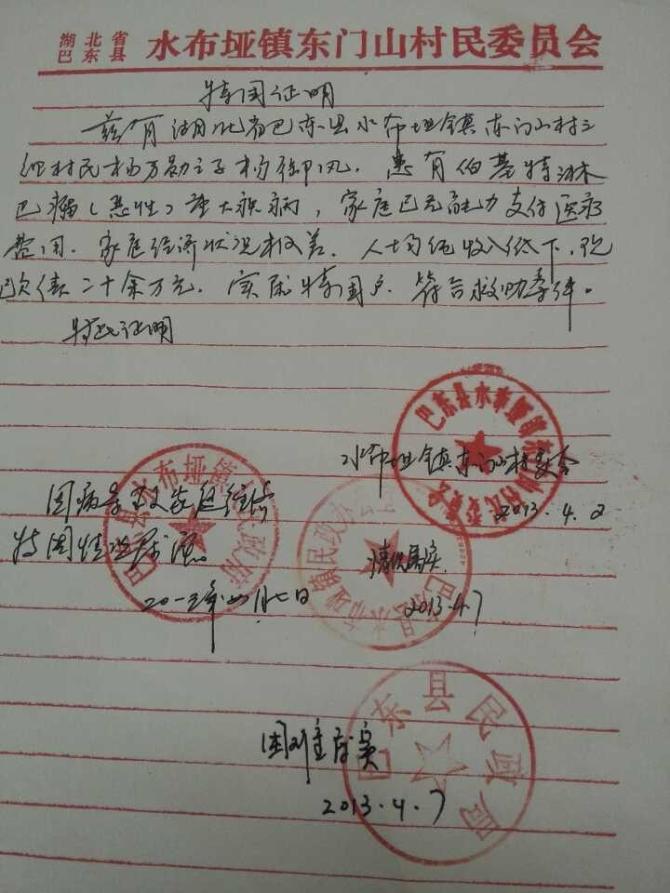 湖北省
巴东县 水布垭镇东门山村民委员会
特困证明
兹有湖北省巴东县水布垭镇东门山村三
组村民杨万勋之子杨御风，患有伯基特淋
巴瘤(恶性)重大疾病，家庭已无能力支付医疗
费用，家庭经济状况极差，人均纯收入低下，现
已欠债二十余万元，实属特困户，符合救助条件。
特此证明
巴东县水布垭镇东门山村民委员会
水布垭镇东门山村委会
2013.4.2
巴东县水布垭镇人民政府
因病导致家庭经济
特困情况属实。
二〇一三年四月七日
巴东县水布垭镇民政办公室
情况属实.
2013.4.7
巴东县民政局
困难属实
2013.4.7